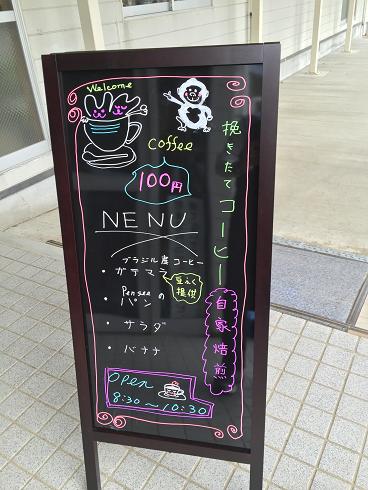 Welcome
coffee
100円
挽きたてコーヒー
自家焙煎
NENU
ブラジル産コーヒー
・ガテマラ
提供
Penséeの
・パン
・サラダ
・バナナ
OPEN
8:30～10:30